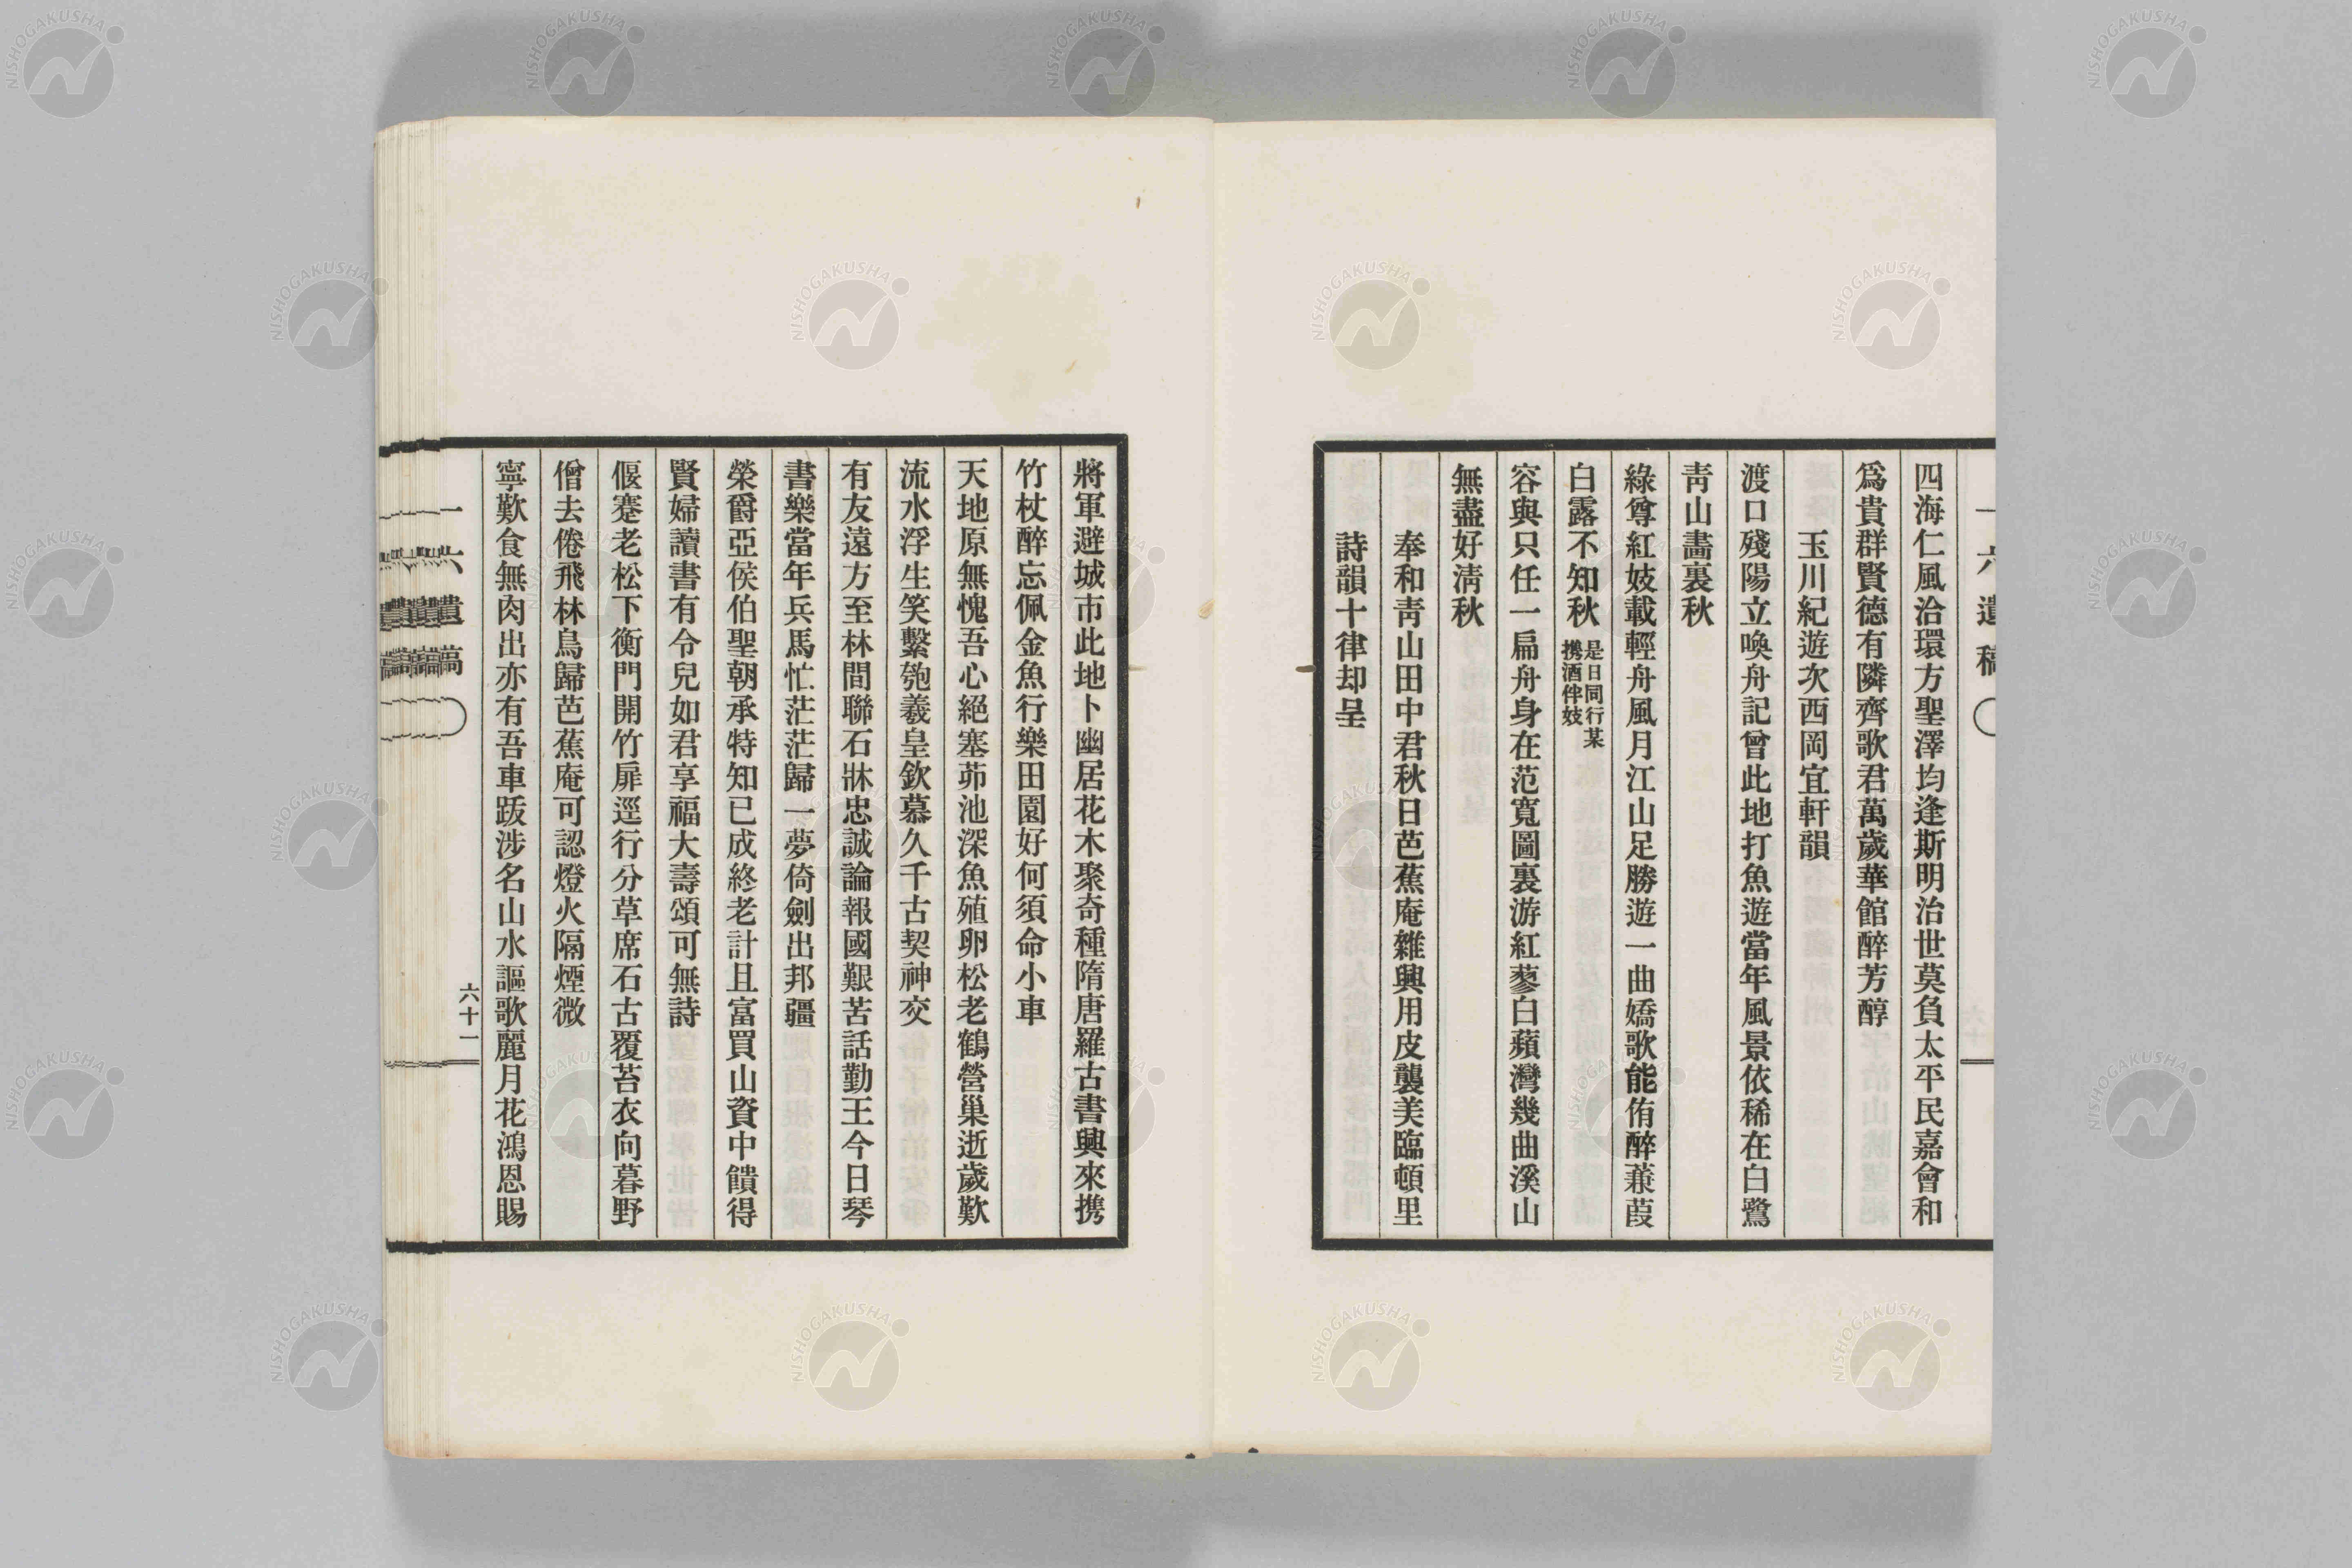 一六遺稿
四海仁風洽環方聖澤均逢斯明治世莫負太平民嘉會和
爲貴群賢德有隣齊歌君萬歲華館醉芳醇
玉川紀遊次西岡宜軒韻
渡口殘陽立喚舟記曾此地打魚遊當年風景依稀在白鷺
靑山畵裏秋
綠尊紅妓載輕舟風月江山足勝遊一曲嬌歌能侑醉蒹葭
白露不知秋是日同行某携酒伴妓
容與只任一扁舟身在范寬圖裏游紅蓼白蘋灣幾曲溪山
無盡好淸秋
奉和靑山田中君秋日芭蕉庵雜興用皮襲美臨頓里
詩韻十律却呈
將軍避城市此地卜幽居花木聚奇種隋唐羅古書興來携
竹杖醉忘佩金魚行樂田園好何須命小車
天地原無愧吾心絕塞茆池深魚殖卵松老鶴營巢逝歲歎
流水浮生笑繫匏羲皇欽慕久千古契神交
有友遠方至林間聯石牀忠誠論報國艱苦話勤王今日琴
書樂當年兵馬忙茫茫歸一夢倚劍出邦疆
榮爵亞侯伯聖朝承特知已成終老計且富買山資中饋得
賢婦讀書有令兒如君享福大壽頌可無詩
偃蹇老松下衡門開竹扉逕行分草席石古覆苔衣向暮野
僧去倦飛林鳥歸芭蕉庵可認燈火隔煙微
寧歎食無肉出亦有吾車跋涉名山水謳歌麗月花鴻恩賜
一六遺稿
六十一
NISHOGAKUSHA